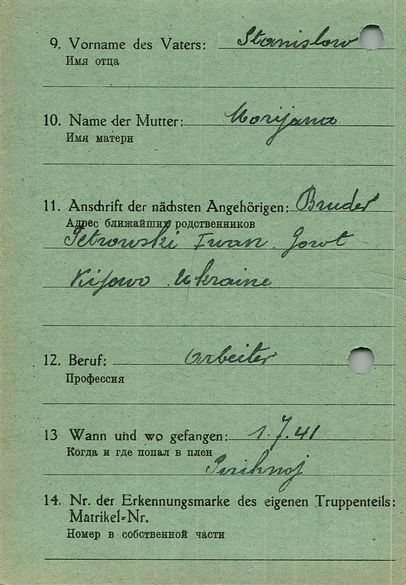 9. Vorname des Vaters: Stanislow
Имя отца
10. Name der Mutter: Morijana
Имя матери
11. Anschrift der nächsten Angehörigen: Bruder
Адрес ближайших родственников
Petrowski Iwan. Gowt
Kijowo Ukraine
12. Beruf: Arbeiter
Профессия
13 Wann und wo gefangen: 1.7.41
Когда и где попал в плен
14. Nr. der Erkennungsmarke des eigenen Truppenteils:
Matrikel-Nr.
Номер в собственной части